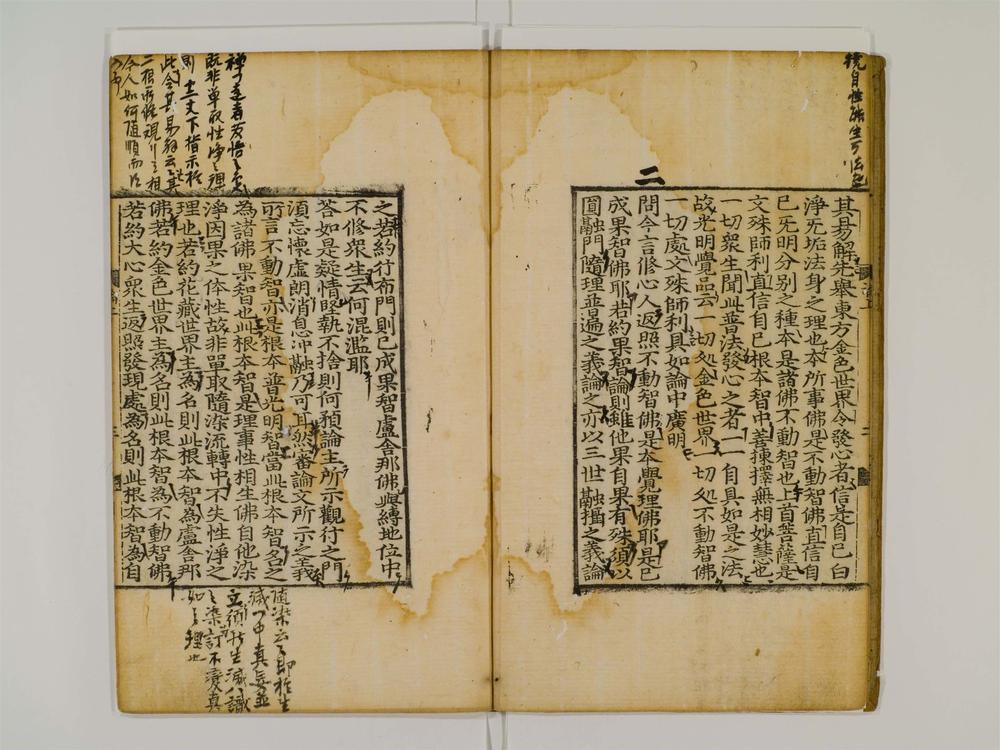 二
其易解先舉東方金色世界令發心者信是自己白
淨无垢法身之理也本所事佛是不動智佛直信自
已无明分別之種本是諸佛不動智也上首菩薩是
文殊師利直信自已根本智中善揀擇無相妙慧也
一切衆生聞此普法發心之者一一自具如是之法
故光明覺品云一切処金色世界一切処不動智佛
一切處文殊師利具如論中廣明
問今言修心人返照不動智佛是本覺理佛耶是已
成果智佛耶若約果智論則雖他果自果有殊須以
圓融門隨理並遍之義論之亦以三世融攝之義論
既非單取性淨之理
則十三丈下指示於
此令其易解云云其
令人如何随順而
之若約行布門則已成果智盧舍那佛與縛地位中
不修衆生云何混濫耶
答如是疑情堅執不捨則何預論主所示觀行之門
須忘懷虛朗消息冲融乃可耳然審論文所示之義
所言不動智亦是根本普光明智當此根本智名之
為諸佛果智也此根本智是理事性相生佛自他染
淨因果之体性故非單取隨染流轉中不失性淨之
理也若約花藏世界主為名則此根本智為盧舍那
佛若約金色世界主為名則此根本智為不動智佛
若約大心衆生返照發現處為名則此根本智為自
随染云云即於生
滅門中真妄並
立須於生滅八識
之染訂不変真
如之理也